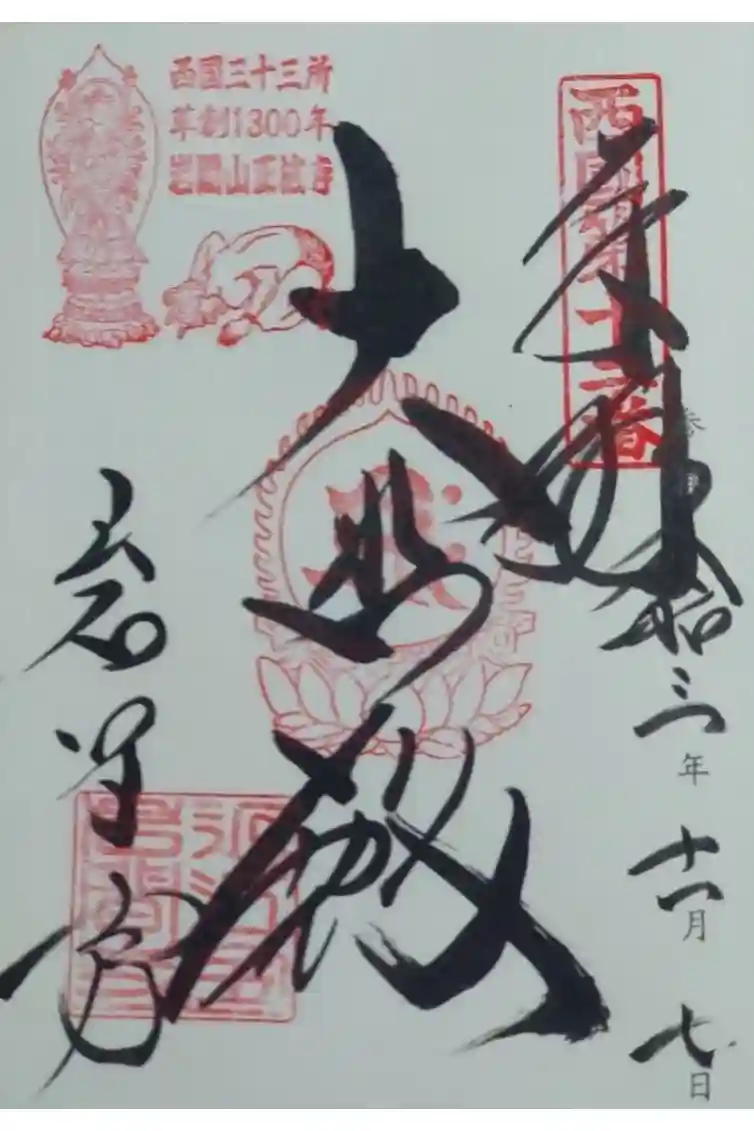 西国三十三所
草創1300年
岩間山正法寺
西国第十二番
奉拝
令和三年
十一月
七日
大悲殿
岩間寺